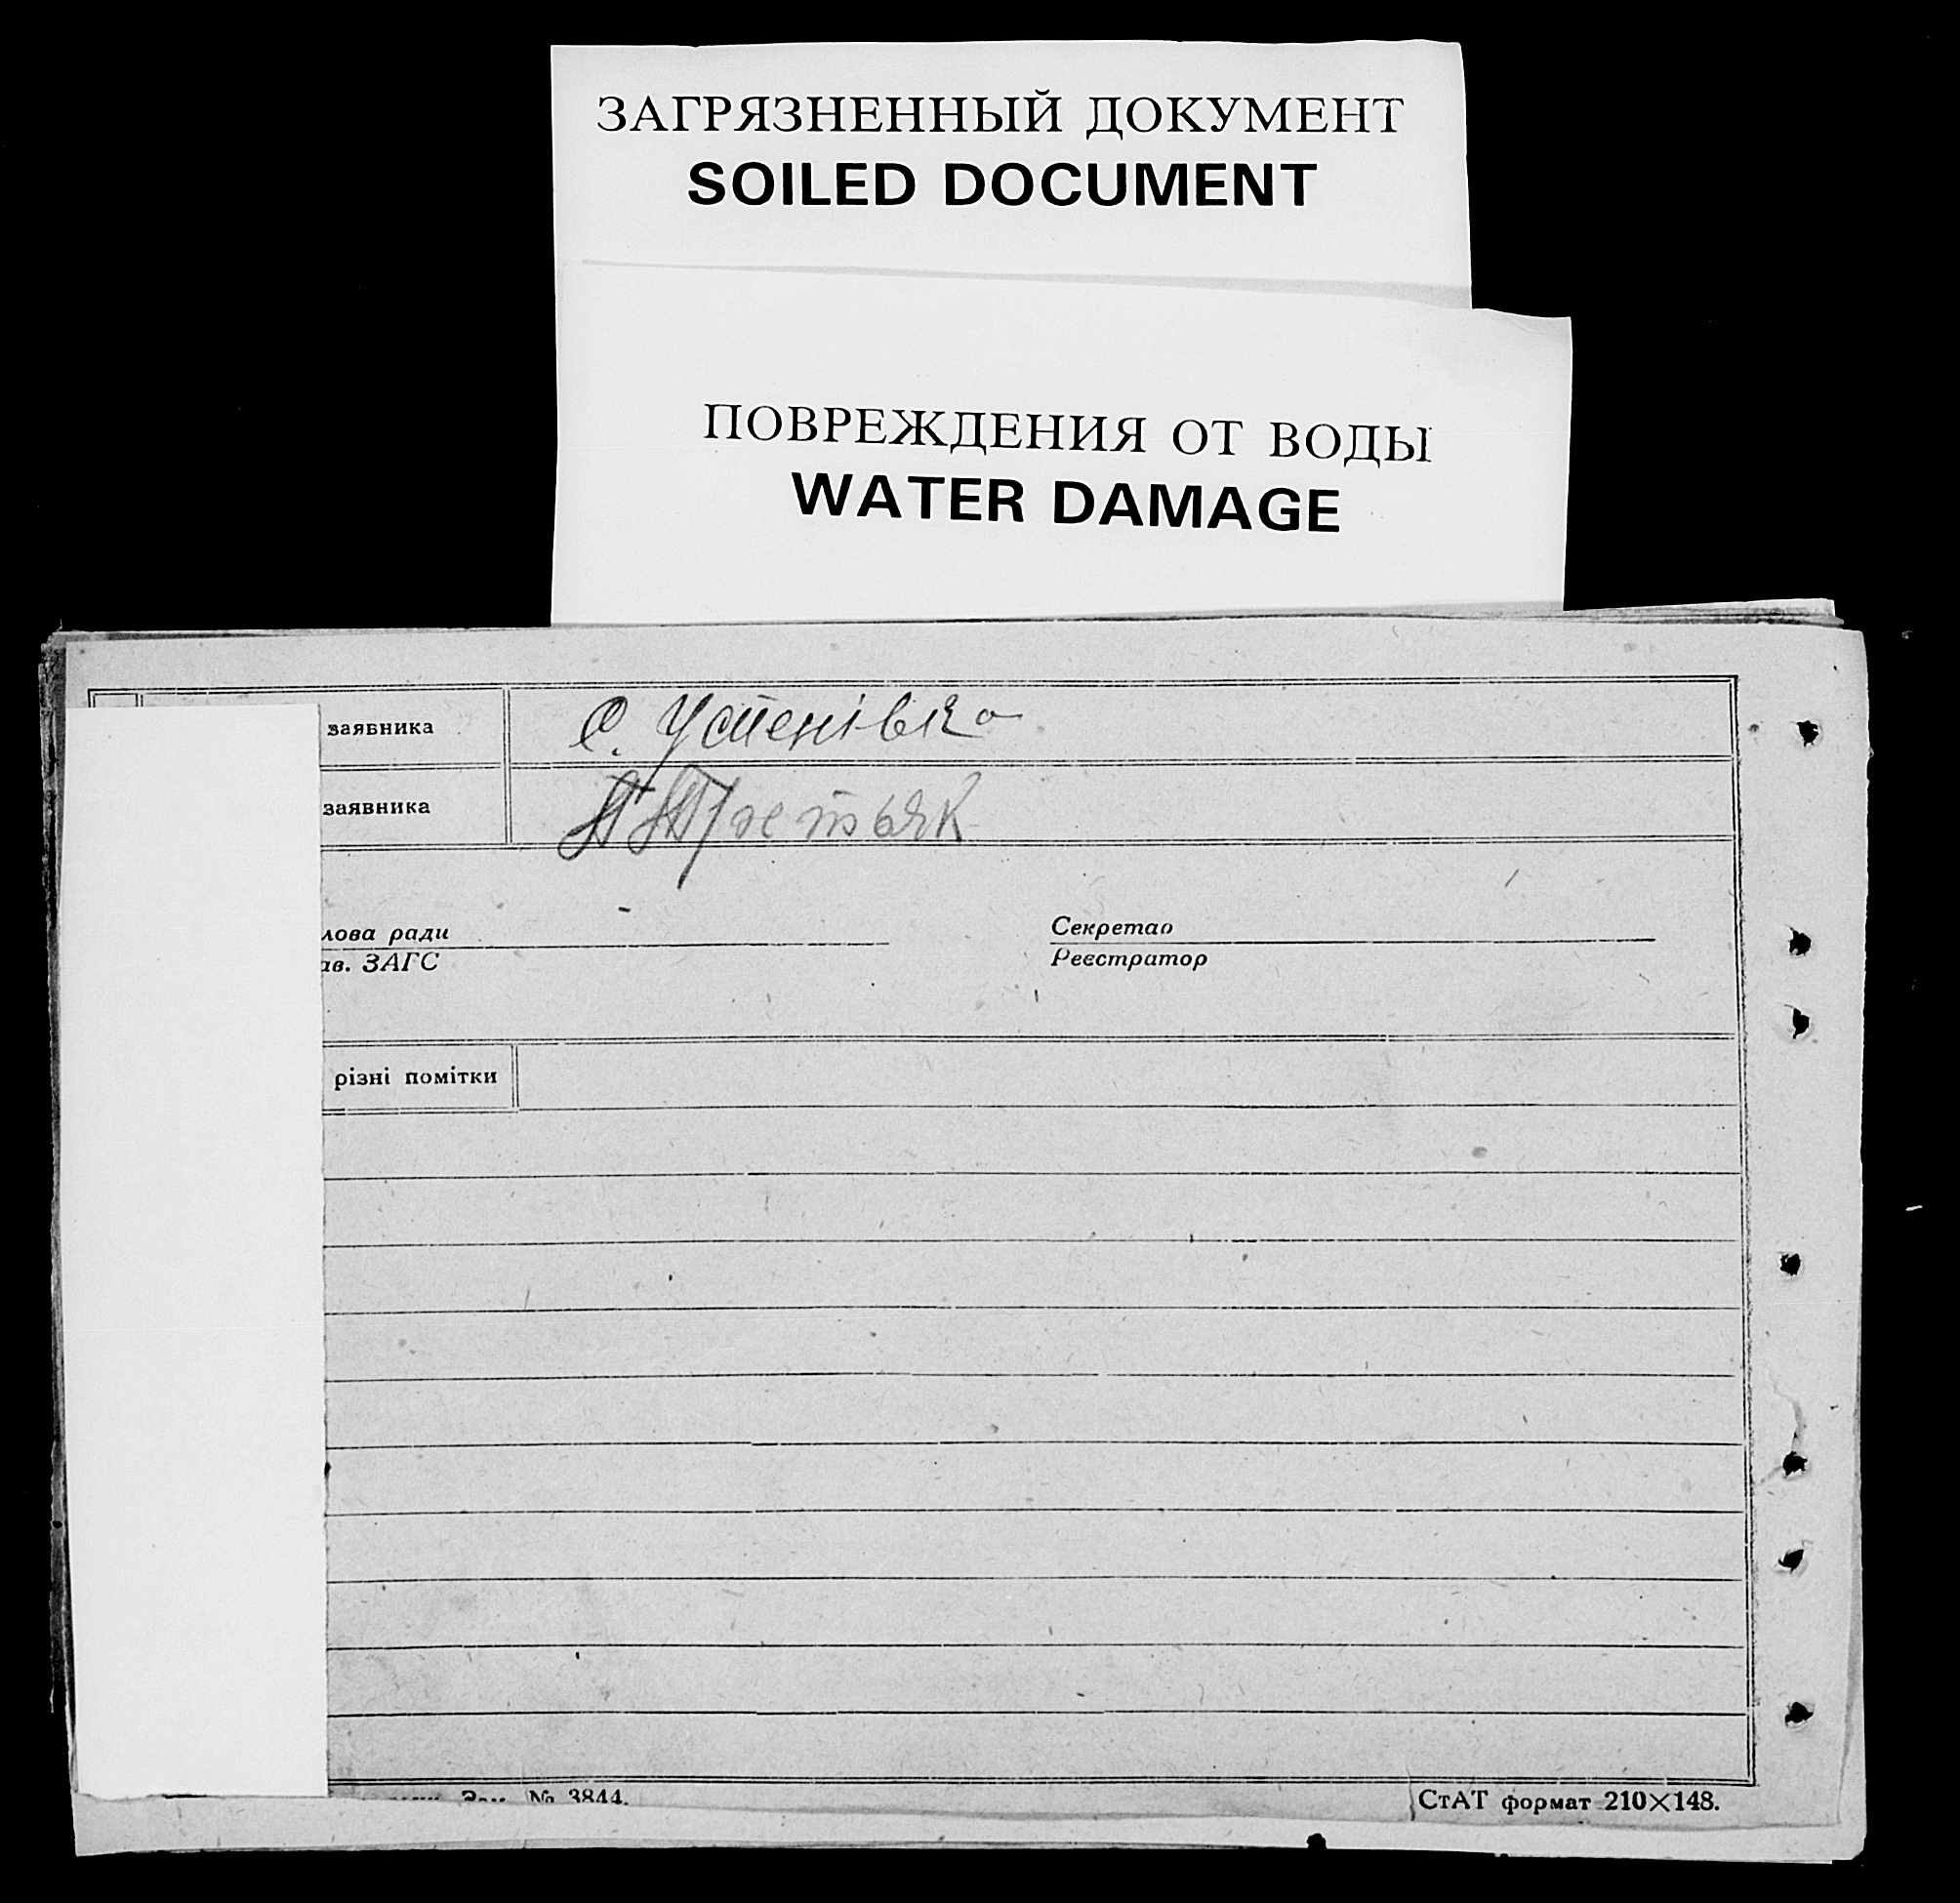 ЗАГРЯЗНЕННЫЙ ДОКУМЕНТ
SOILED DOCUMENT
ПОВРЕЖДЕНИЯ ОТ ВОДЫ
WATER DAMAGE
заявника
с. Успенівка
заявника
Третьяк
лова ради
Секретар
ав. ЗАГС
Реєстратор
різні помітки
Зам. № 3844.
СтАТ формат 210×148.